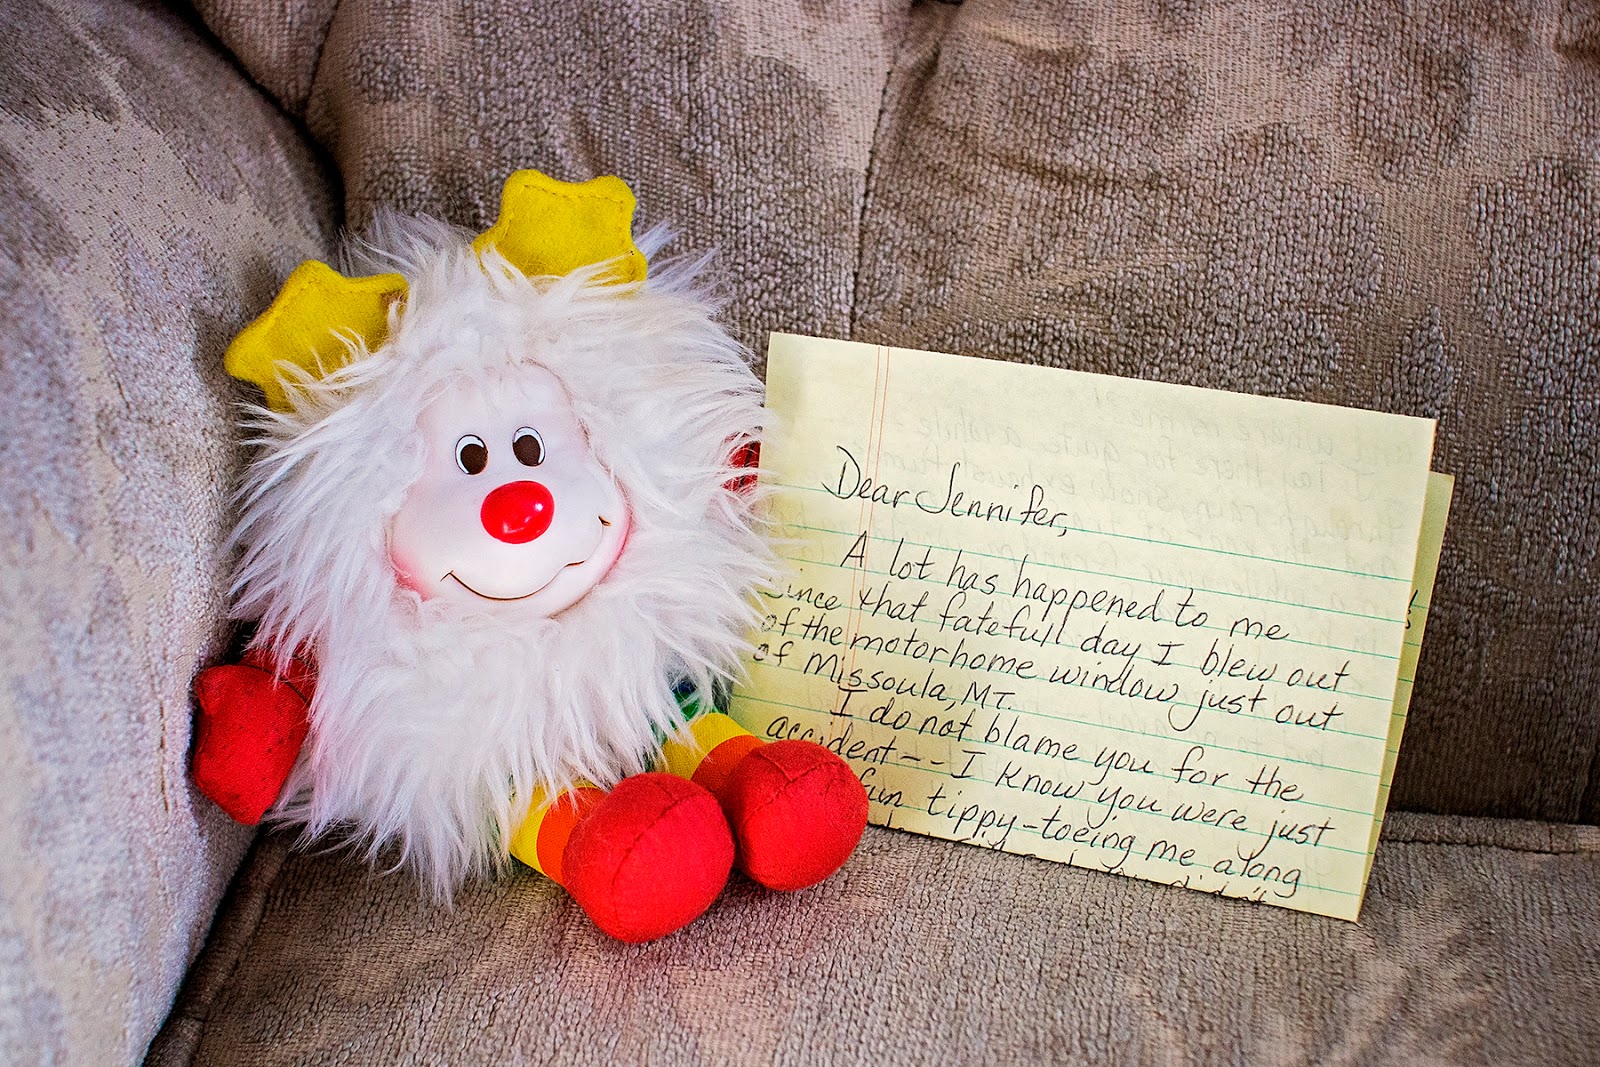 Dear Jennifer,
A lot has happened to me
Since that fatefull day I blew out
of the motorhome window just out
of Missoula, MT.
I do not blame you for the
accident -- I know you were just
fun tippy-toeing me along